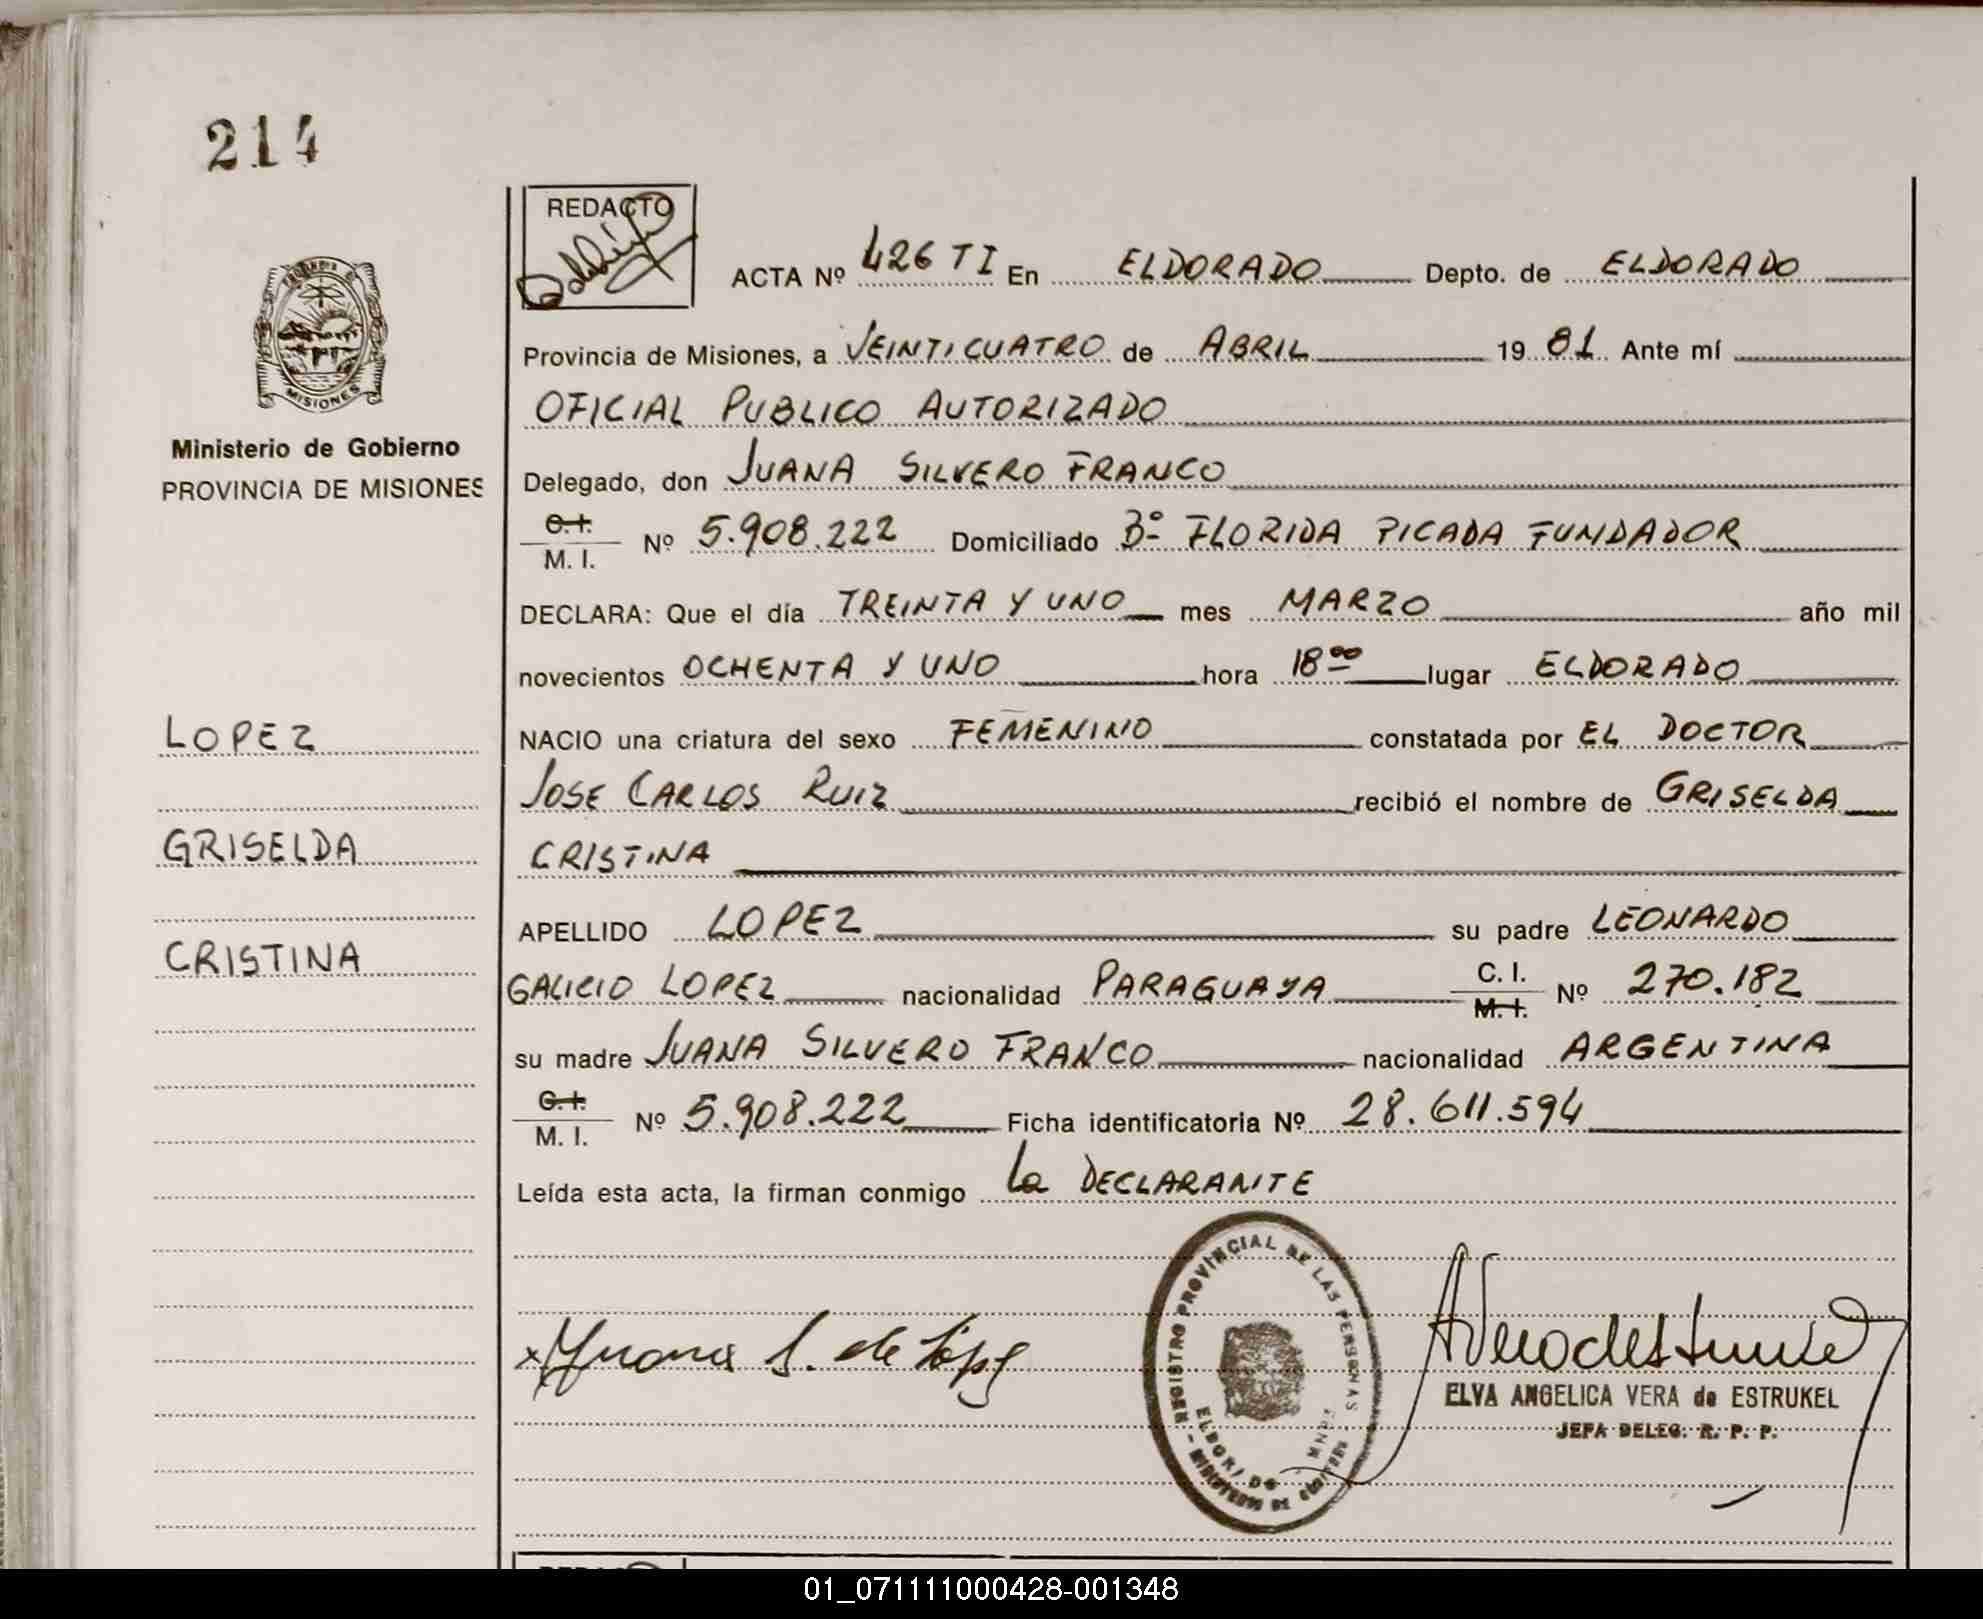 214
REDACTO
ACTA Nº 426 TI En ELDORADO Depto. de ELDORADO
Provincia de Misiones, a VEINTICUATRO de ABRIL 19 81 Ante mí
OFICIAL PUBLICO AUTORIZADO
Delegado, don JUANA SILVERO FRANCO
C. I.
M. I. Nº 5.908.222 Domiciliado Bº FLORIDA PICADA FUNDADOR
DECLARA: Que el día TREINTA Y UNO mes MARZO año mil
novecientos OCHENTA Y UNO hora 18 00 lugar ELDORADO
NACIO una criatura del sexo FEMENINO constatada por EL DOCTOR
JOSE CARLOS RUIZ recibió el nombre de GRISELDA
CRISTINA
APELLIDO LOPEZ su padre LEONARDO
GALICIO LOPEZ nacionalidad PARAGUAYA C. I. M. I. Nº 270.182
su madre JUANA SILVERO FRANCO nacionalidad ARGENTINA
C. I.
M. I. Nº 5.908.222 Ficha identificatoria Nº 28.611.594
Leída esta acta, la firman conmigo la DECLARANTE
x Juana S. de López
REGISTRO PROVINCIAL DE LAS PERSONAS
ELDORADO - MNES
MINISTERIO DE GOBIERNO
ELVA ANGELICA VERA de ESTRUKEL
JEFA DELEG. R. P. P.
PROVINCIA DE
MISIONES
Ministerio de Gobierno
PROVINCIA DE MISIONES
LOPEZ
GRISELDA
CRISTINA
01_071111000428-001348